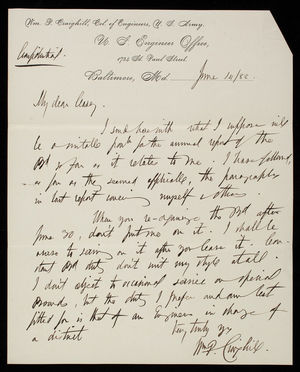 Wm. P. Craighill, Col. of Engineers, U. S. Army.
U. S. Engineer Office,
Confidential.
1725 St. Paul Street
Baltimore, Md June 14/88.
My dear Casey
I send herewith what I suppose will
be a suitable part for the annual report of the
Bd so far as it relates to me. I have followed,
as far as they seemed applicable, the paragraphs
in last report concerning myself & others.
When you re-arrange the Bd after
June 30, don't put me on it. I shall be
averse to serving on it after you leave it. Con-
stant Bd duty don't suit my style at all.
I don't object to occasional service on special
Boards, but the duty I prefer and am best
fitted for is that of an Engineer in charge of
a district
Very truly yrs
Wm P. Craighill